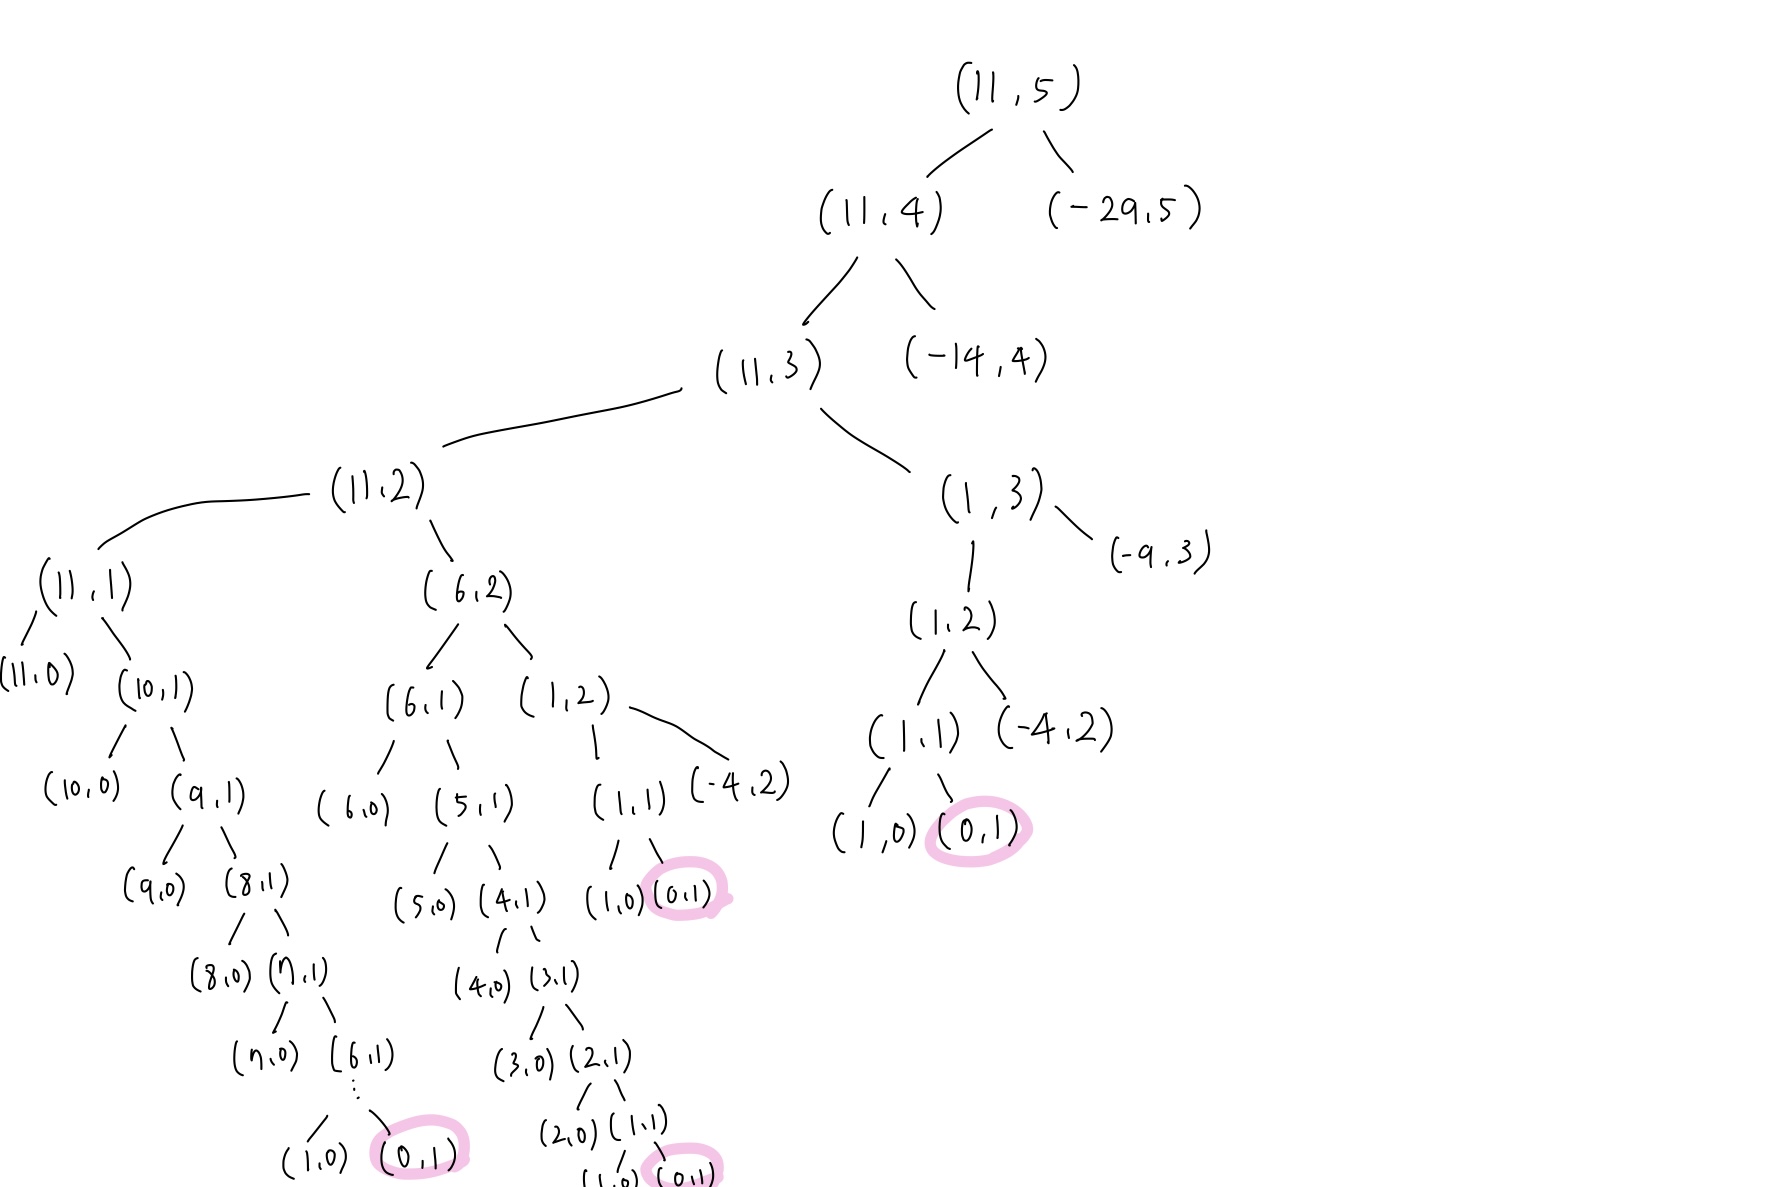 (11,5)
(11,4) (-29,5)
(11,3) (-14,4)
(11,2) (1,3)
(-9,3)
(11,1) (6,2) (1,2)
(11,0) (10,1) (6,1) (1,2) (1,1) (-4,2)
(10,0) (9,1) (6,0) (5,1) (1,1) (-4,2) (1,0) (0,1)
(9,0) (8,1) (5,0) (4,1) (1,0) (0,1)
(8,0) (7,1) (4,0) (3,1)
(7,0) (6,1) (3,0) (2,1)
(2,0) (1,1)
(1,0) (0,1) (1,0) (0,1)